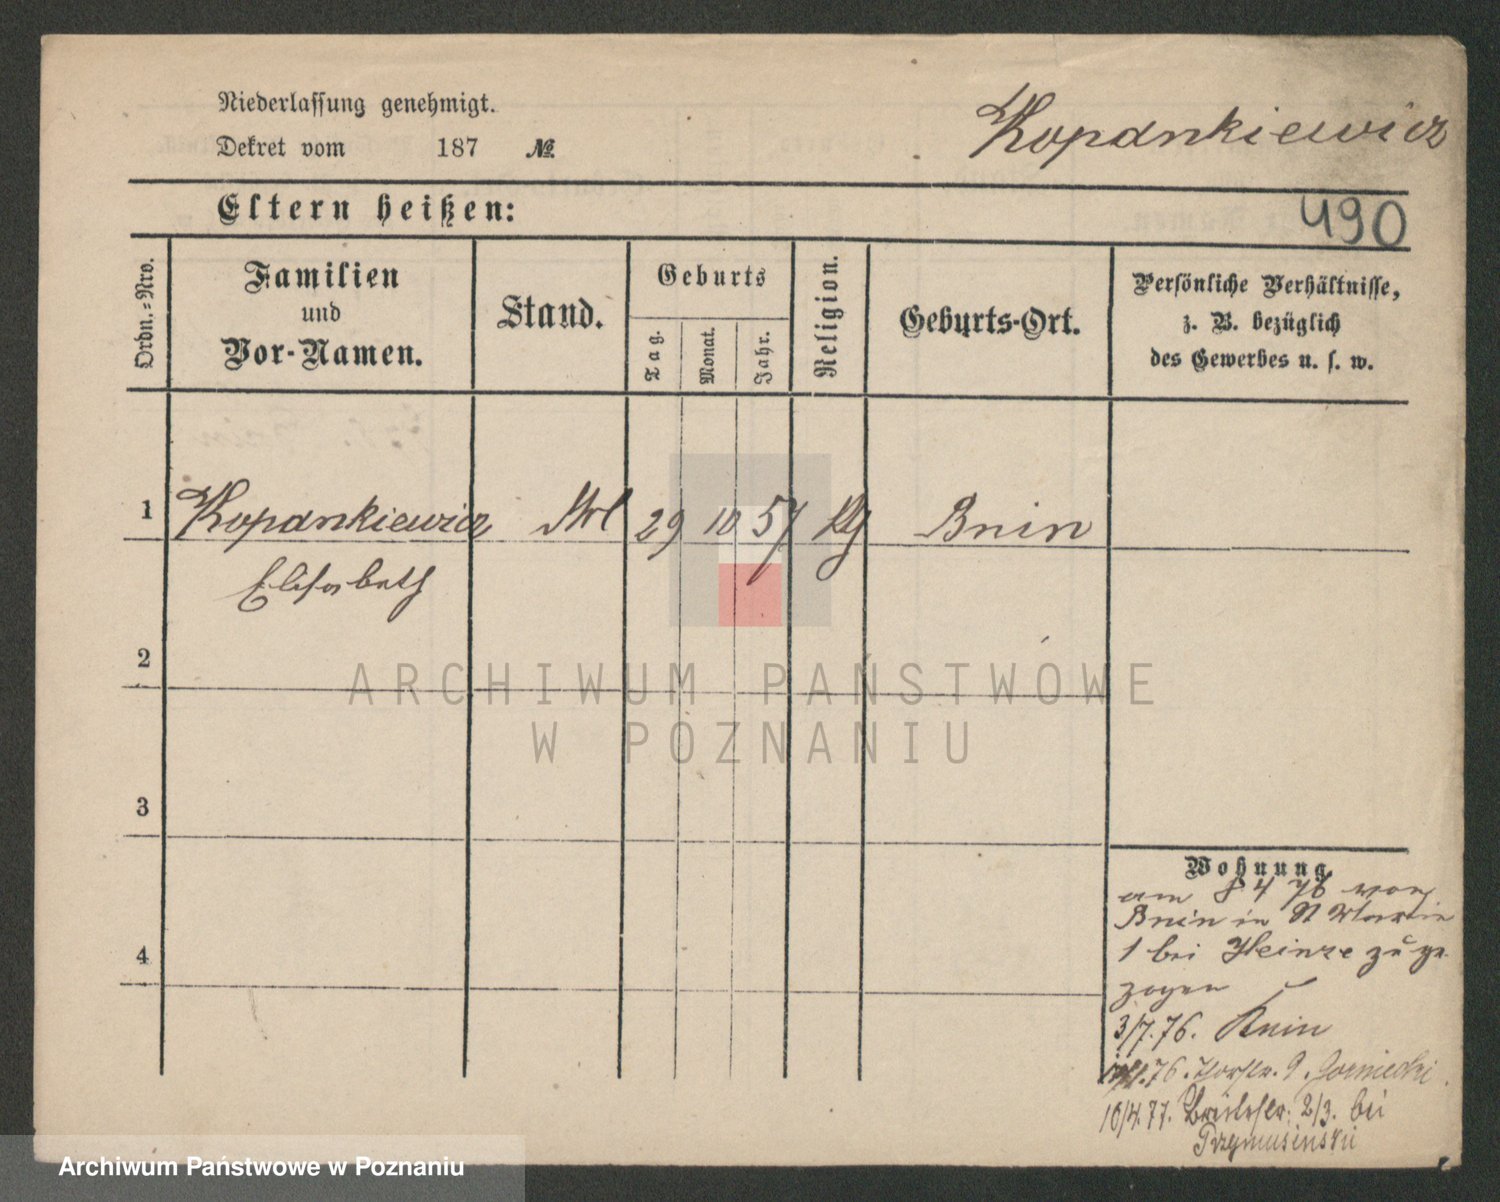 Niederlassung genehmigt.
Kopankiewicz
Dekret vom 187 №
Eltern heißen:
490
Ordn.-Nro.
Familien
und
Vor-Namen.
Stand.
Geburts
Tag.
Monat.
Jahr.
Religion.
Geburts-Ort.
Persönliche Verhältnisse,
z. B. bezüglich
des Gewerbes u. s. w.
1 Kopankiewicz 29 10 57 Bnin
Elisabeth
2
ARCHIWUM PAŃSTWOWE
W POZNANIU
3
Wohnung
am 8 4 76 von
Bnin in St Martin
4
1 bei Heinze zuge
zogen
3/7.76. Bnin
76. 9.
10/4.77. 2/3. bei
Przymusinski
Archiwum Państwowe w Poznaniu